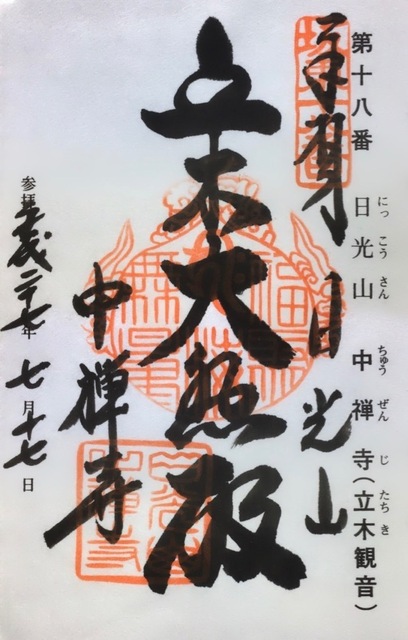 第十八番 日光山 中禅寺(立木観音)
にっこうさん ちゅうぜんじ たちき
奉拝 日光山
立木大悲殿
中禅寺
参拝 平成二十七年 七月十七日